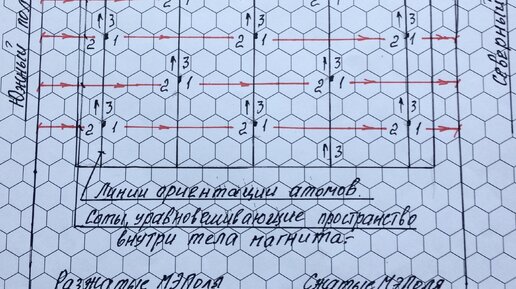 3 3 3
2 1 2 1 2
Южный пол
Северный
3 3
2 1 2 1
3 3 3
2 1 2 1 2
3
Линии ориентации атомов.
Соты, уравновешивающие пространство
внутри тела магнита.
Разжатые МЭПоля Сжатые МЭПоля